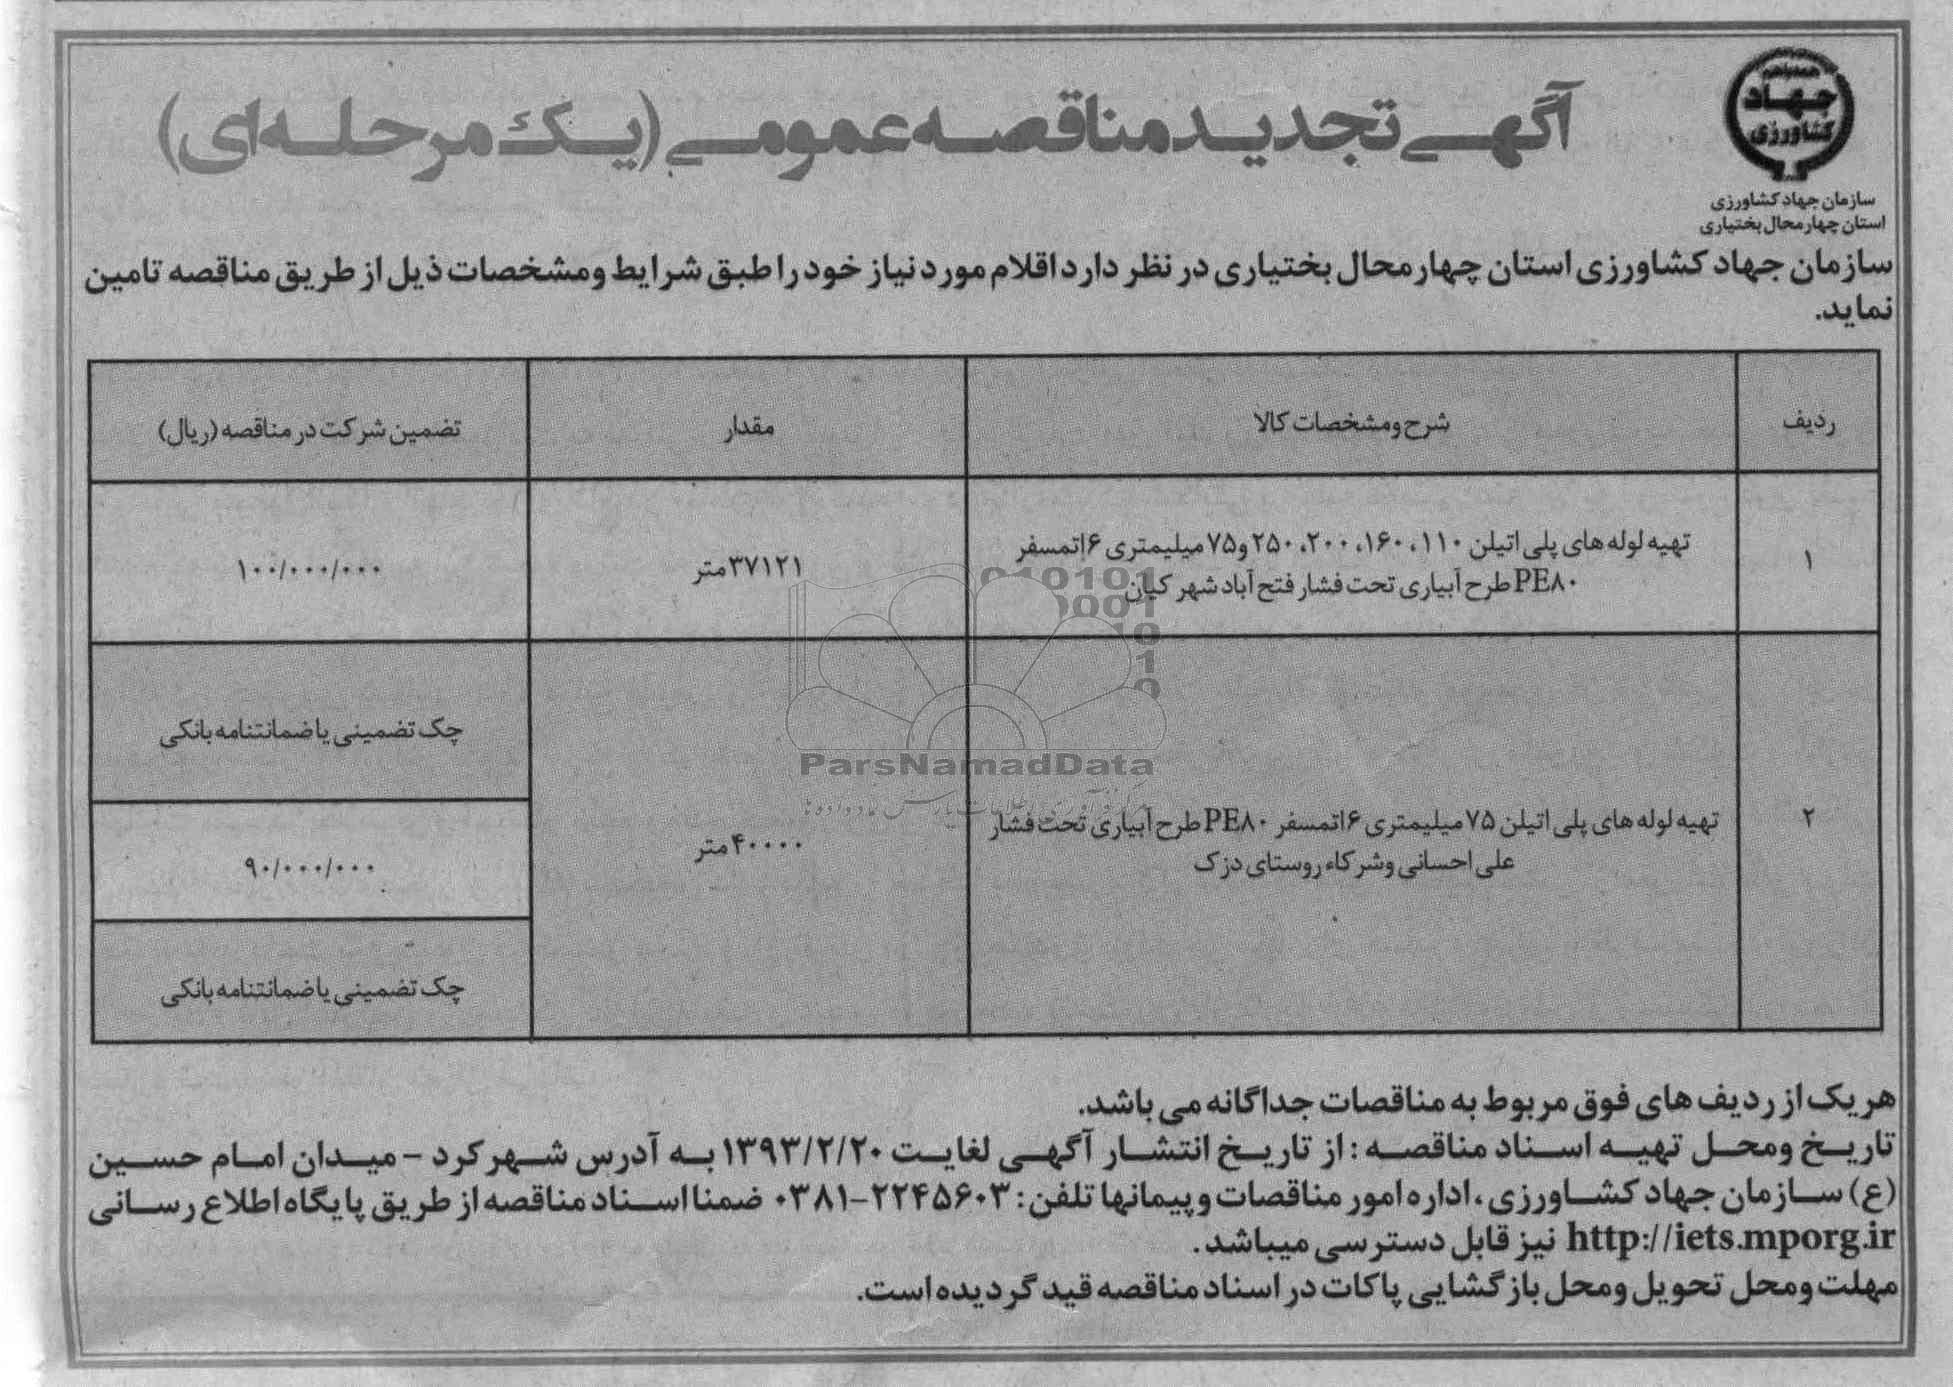 جهاد
کشاورزی
سازمان جهاد کشاورزی
استان چهارمحال بختیاری
آگهی تجدید مناقصه عمومی (یک مرحله‌ای)
سازمان جهاد کشاورزی استان چهارمحال بختیاری در نظر دارد اقلام مورد نیاز خود را طبق شرایط ومشخصات ذیل از طریق مناقصه تامین
نماید.
ردیف شرح ومشخصات کالا مقدار تضمین شرکت در مناقصه (ریال)
۱ تهیه لوله های پلی اتیلن ۱۱۰، ۱۶۰، ۲۰۰، ۲۵۰ و۷۵ میلیمتری ۶اتمسفر
PE۸۰ طرح آبیاری تحت فشار فتح آباد شهر کیان
۳۷۱۲۱متر
۱۰۰/۰۰۰/۰۰۰
چک تضمینی یا ضمانتنامه بانکی
۲ تهیه لوله های پلی اتیلن ۷۵ میلیمتری ۶اتمسفر PE۸۰ طرح آبیاری تحت فشار
علی احسانی وشرکاء روستای دزک
۴۰۰۰۰ متر
۹۰/۰۰۰/۰۰۰
چک تضمینی یا ضمانتنامه بانکی
010101
0001
10
1
0
ParsNamadData
هر یک از ردیف های فوق مربوط به مناقصات جداگانه می باشد.
تاریخ ومحل تهیه اسناد مناقصه : از تاریخ انتشار آگهی لغایت ۱۳۹۳/۲/۲۰ به آدرس شهرکرد - میدان امام حسین
(ع) سازمان جهاد کشاورزی ، اداره امور مناقصات و پیمانها تلفن : ۲۲۴۵۶۰۳-۰۳۸۱ ضمنا اسناد مناقصه از طریق پایگاه اطلاع رسانی
http://iets.mporg.ir نیز قابل دسترسی میباشد.
مهلت ومحل تحویل ومحل بازگشایی پاکات در اسناد مناقصه قید گردیده است.